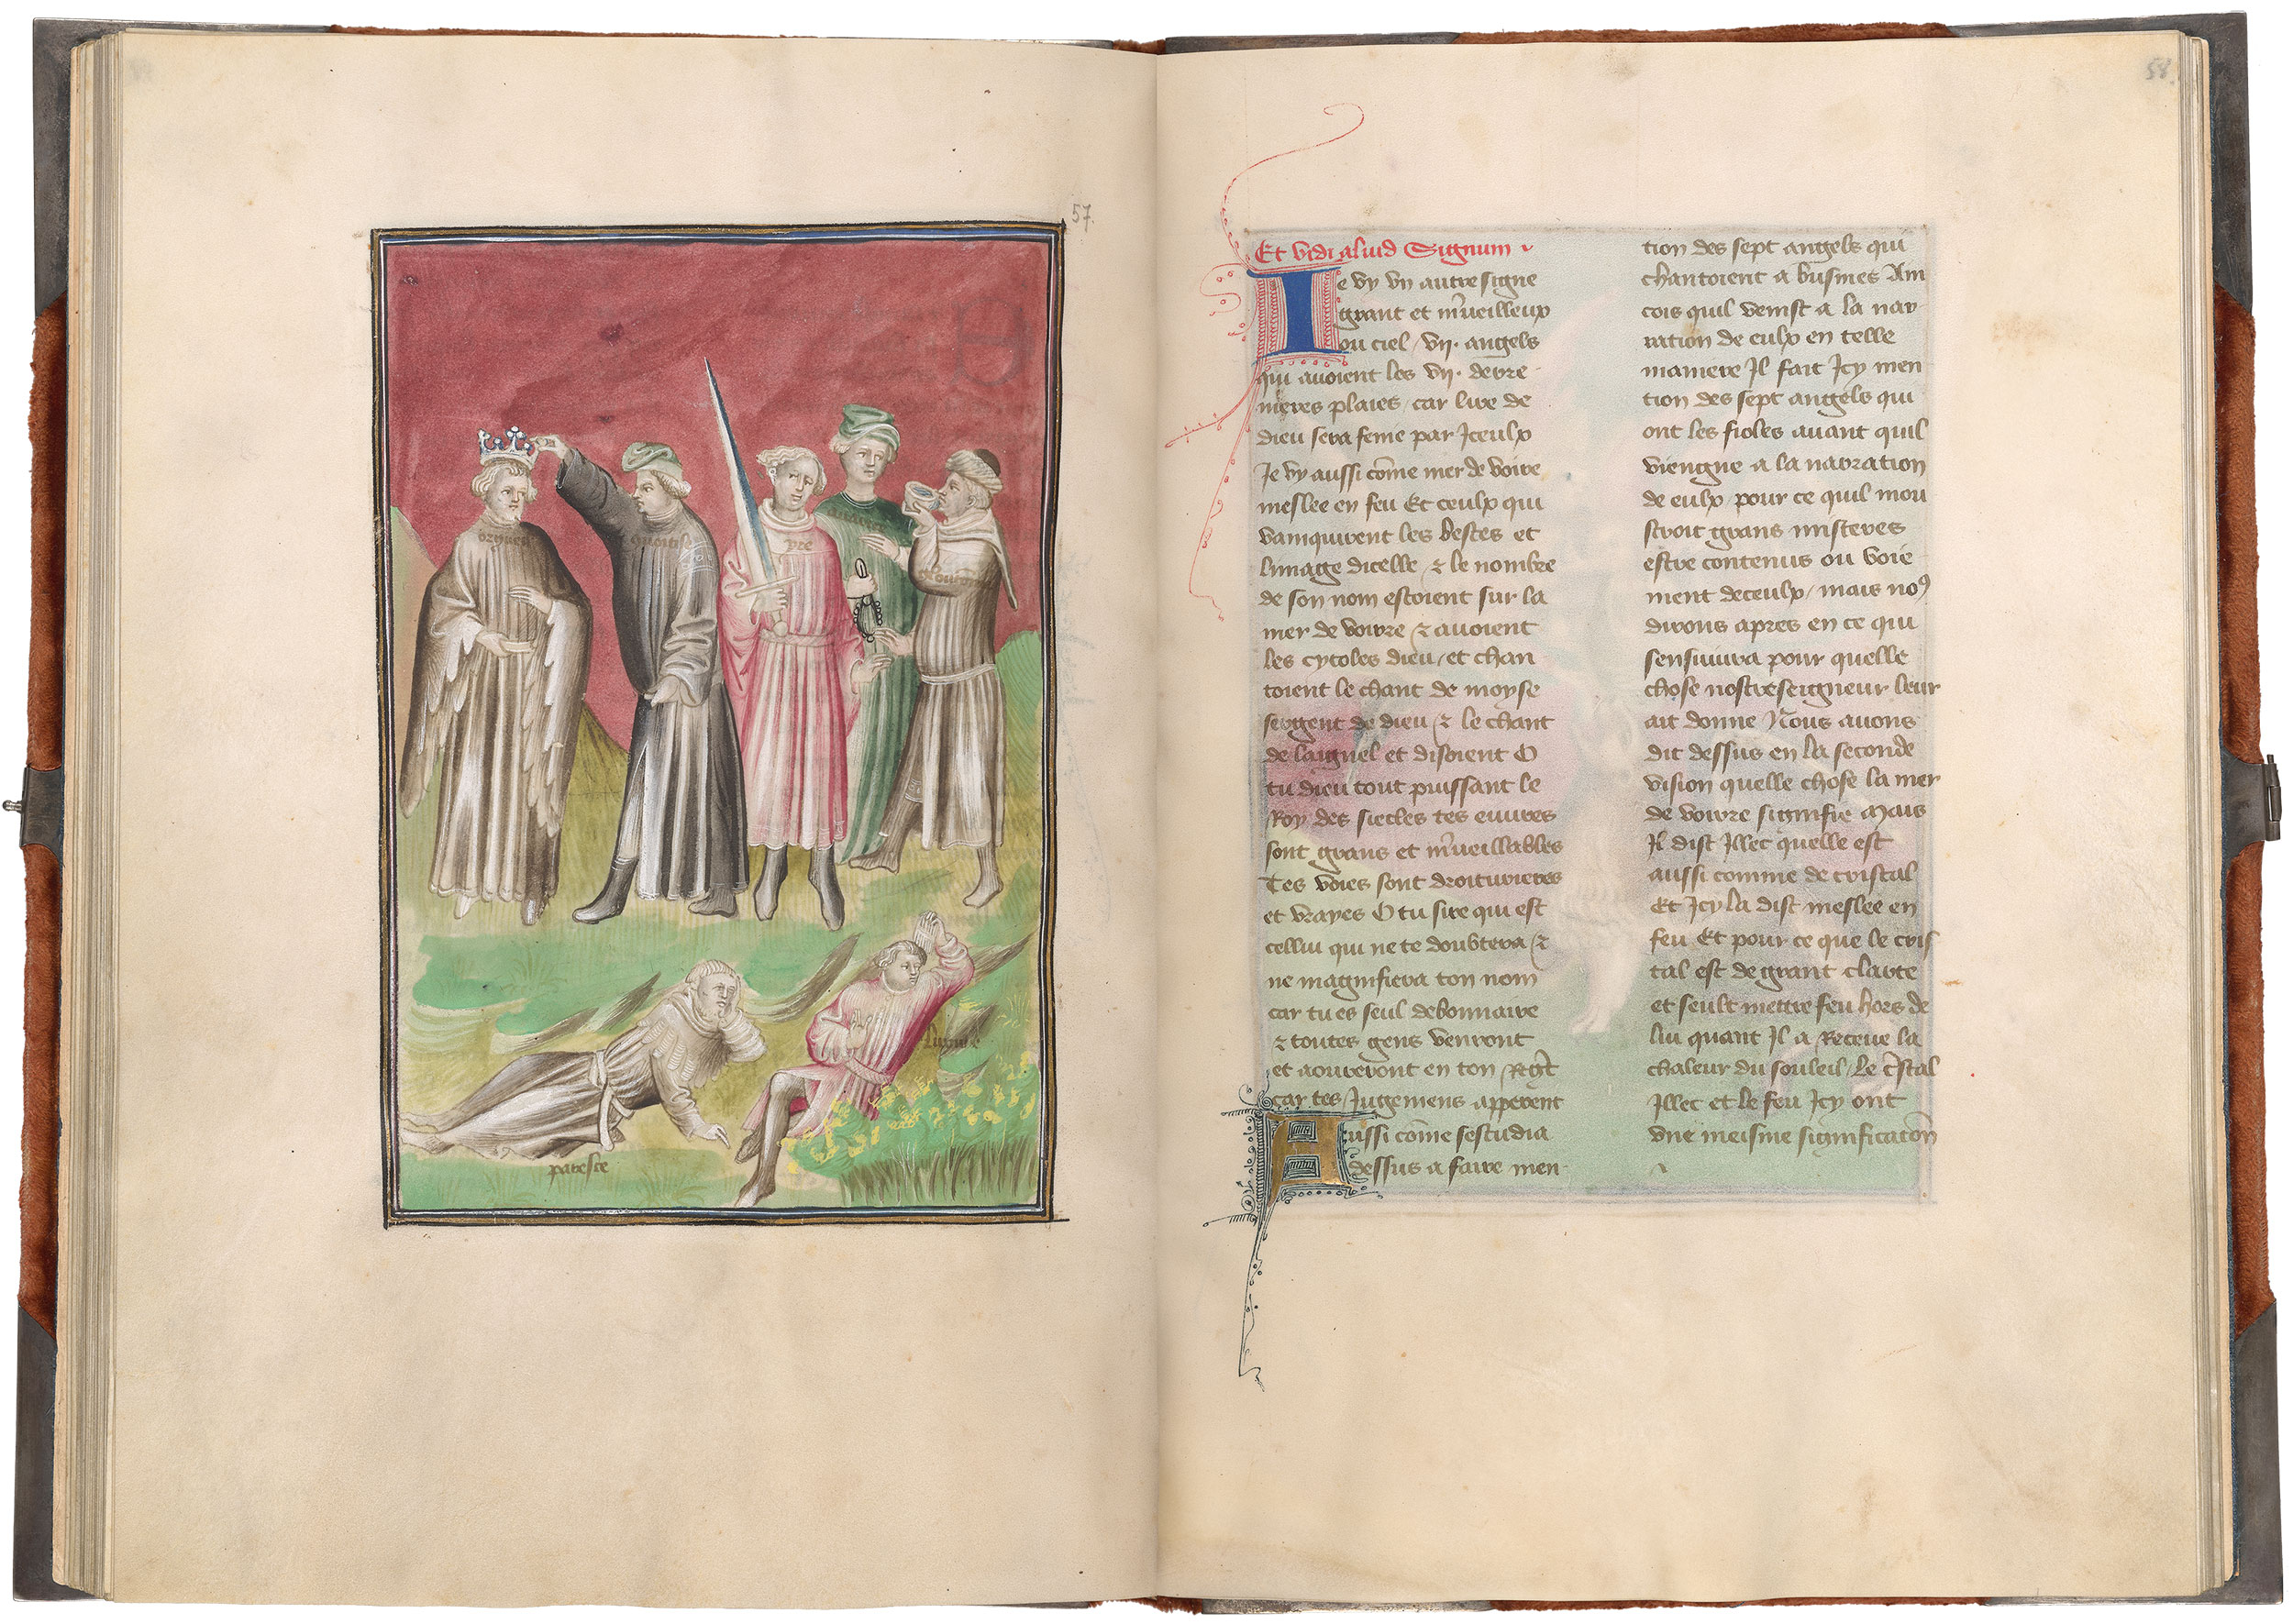 57.
orgueil
yre
paresce
58.
Et vidi aliud Signum
Je vy vn autre signe
grant et mʼueilleux
ou ciel / vij. angels
qui auoient les vij. derre
nieres plaies / car lire de
dieu sera fenie par Iceulx
Je vy aussi cōme mer de voire
meslee en feu Et ceulx qui
vainquirent les bestes et
limage dicelle / ⁊ le nombre
de son nom estoient sur la
mer de voirre ⁊ auoient
les cytoles dieu / et chan
toient le chant de moyse
sergent de dieu / ⁊ le chant
de laignel et disoient O
tu dieu tout puissant le
Roy des siecles tes euures
sont grans et mʼueillables
Tes voies sont droiturieres
et vrayes O tu sire qui est
cellui qui ne te doubtera / ⁊
ne magnifiera ton nom
car tu es seul debonnaire
⁊ toutes gens venront
et aoureront en ton
car tes Jugemens apperent
Aussi cōme sestudia
dessus a faire men
tion des sept angels qui
chantoient a busines Ain
cois quil venist a la nar
ration de eulx en telle
maniere Il fait Icy men
tion des sept angels qui
ont les fioles auant quil
viengne a la narration
de eulx / pour ce quil mou
stroit grans misteres
estre contenus ou voie
ment deceulx / mais noꝰ
dirons apres en ce qui
sensuiura pour quelle
chose nostreseigneur leur
ait donne Nous auons
dit dessus en la seconde
vision quelle chose la mer
de voirre signifie Mais
Il dist Illec quelle est
aussi comme de cristal
Et Icy la dist meslee en
feu Et pour ce que le cris
tal est de grant clarte
et seult mettre feu hors de
lui quant Il a Receue la
chaleur du souleil / Le
Illec et le feu Icy ont
vne meisme significatōn